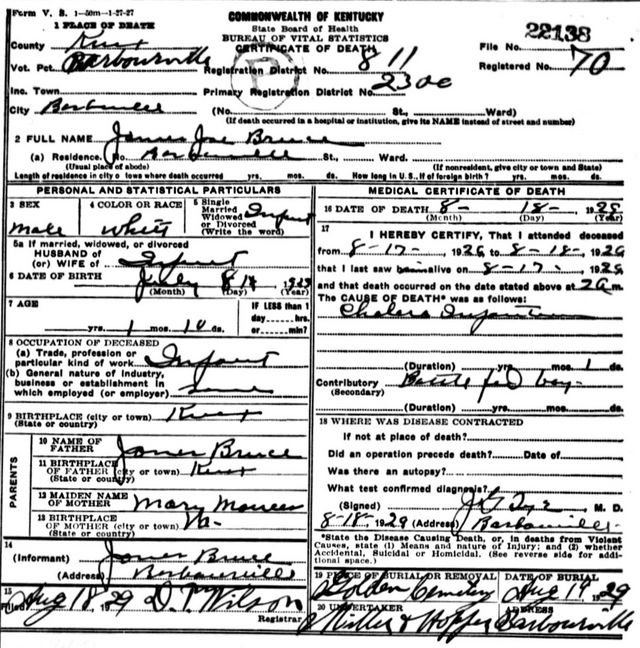 Form V. S. 1-50m-1-27-27
COMMONWEALTH OF KENTUCKY
State Board of Health
BUREAU OF VITAL STATISTICS
CERTIFICATE OF DEATH
1 PLACE OF DEATH
County Knox
Vot. Pct. Barbourville
Inc. Town
City Barbourville
File No. 22138
Registered No. 70
Registration District No. 811
Primary Registration District No.
(No. St., Ward)
(If death occurred in a hospital or institution, give its NAME instead of street and number)
2 FULL NAME James Joe Bruce
(a) Residence. No. Barbourville St., Ward.
(Usual place of abode) (If nonresident, give city or town and State)
Length of residence in city or town where death occurred yrs. mos. ds. How long in U.S., if of foreign birth? yrs. mos. ds.
PERSONAL AND STATISTICAL PARTICULARS
3 SEX male
4 COLOR OR RACE White
5 Single Married Widowed or Divorced (Write the word) Infant
5a If married, widowed, or divorced
HUSBAND of
(or) WIFE of Infant
6 DATE OF BIRTH July 1929
(Month) (Day) (Year)
7 AGE
yrs. 1 mos. 10 ds.
IF LESS than 1 day----hrs. or----min?
8 OCCUPATION OF DECEASED
(a) Trade, profession or particular kind of work Infant
(b) General nature of industry, business or establishment in which employed (or employer)
9 BIRTHPLACE (city or town) Knox
(State or country)
PARENTS
10 NAME OF FATHER James Bruce
11 BIRTHPLACE OF FATHER (city or town) Knox
(State or country)
12 MAIDEN NAME OF MOTHER Mary
13 BIRTHPLACE OF MOTHER (city or town)
(State or country)
14
(Informant) James Bruce
(Address) Barbourville
15
Filed Aug 18 29 D. P. Wilson
Registrar
MEDICAL CERTIFICATE OF DEATH
16 DATE OF DEATH 8- 18- 1929
(Month) (Day) (Year)
17
I HEREBY CERTIFY, That I attended deceased
from 8-17-, 1929 to 8-18-, 1929
that I last saw him alive on 8-17-, 1929
and that death occurred on the date stated above at 2 a m.
The CAUSE OF DEATH* was as follows:
Cholera Infantum
(Duration) yrs. mos. 1 ds.
Contributory Bottle fed baby
(Secondary)
(Duration) yrs. mos. ds.
18 WHERE WAS DISEASE CONTRACTED
If not at place of death?
Did an operation precede death? Date of
Was there an autopsy?
What test confirmed diagnosis?
(Signed) M. D.
8-18-, 1929 (Address) Barbourville
*State the Disease Causing Death, or, in deaths from Violent
Causes, state (1) Means and nature of Injury; and (2) whether
Accidental, Suicidal or Homicidal. (See reverse side for addi-
tional space.)
19 PLACE OF BURIAL OR REMOVAL Golden Cemetery
DATE OF BURIAL Aug 19 1929
20 UNDERTAKER Miller & Hopper
ADDRESS Barbourville